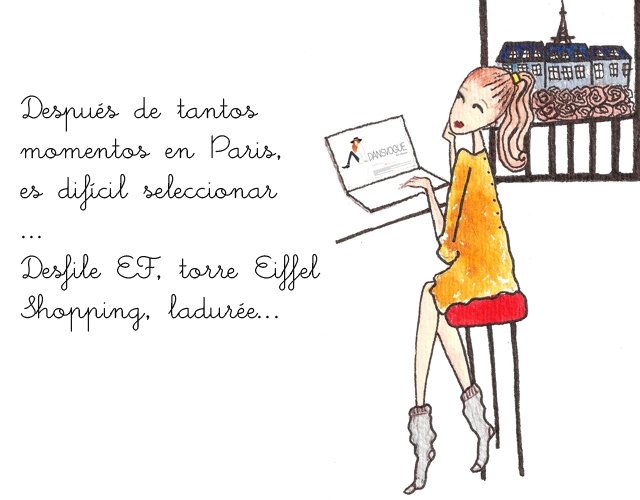 Después de tantos
momentos en Paris,
es difícil seleccionar
...
Desfile EF, torre Eiffel
Shopping, ladurée...
DANSVOGUE